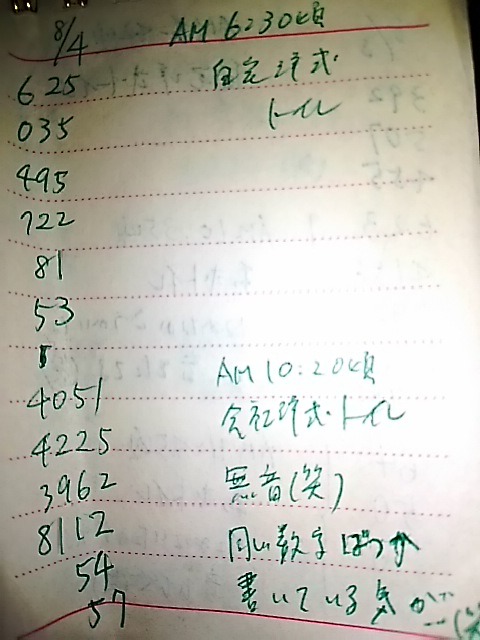 8/4 AM 6:30頃
625 自宅洋式
035 トイレ
495
722
81
53
4051 AM10:20頃
4225 会社洋式トイレ
3962 無音(笑)
8112 同じ数字ばっか
54 書いている気が…(笑
57